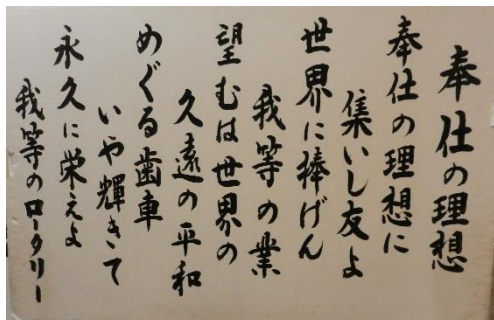 奉仕の理想
奉仕の理想に
集いし友よ
世界に棒げん
我等の業
望むは世界の
久遠の平和
めぐる歯車
いや輝きて
永久に栄えよ
我等のロータリー